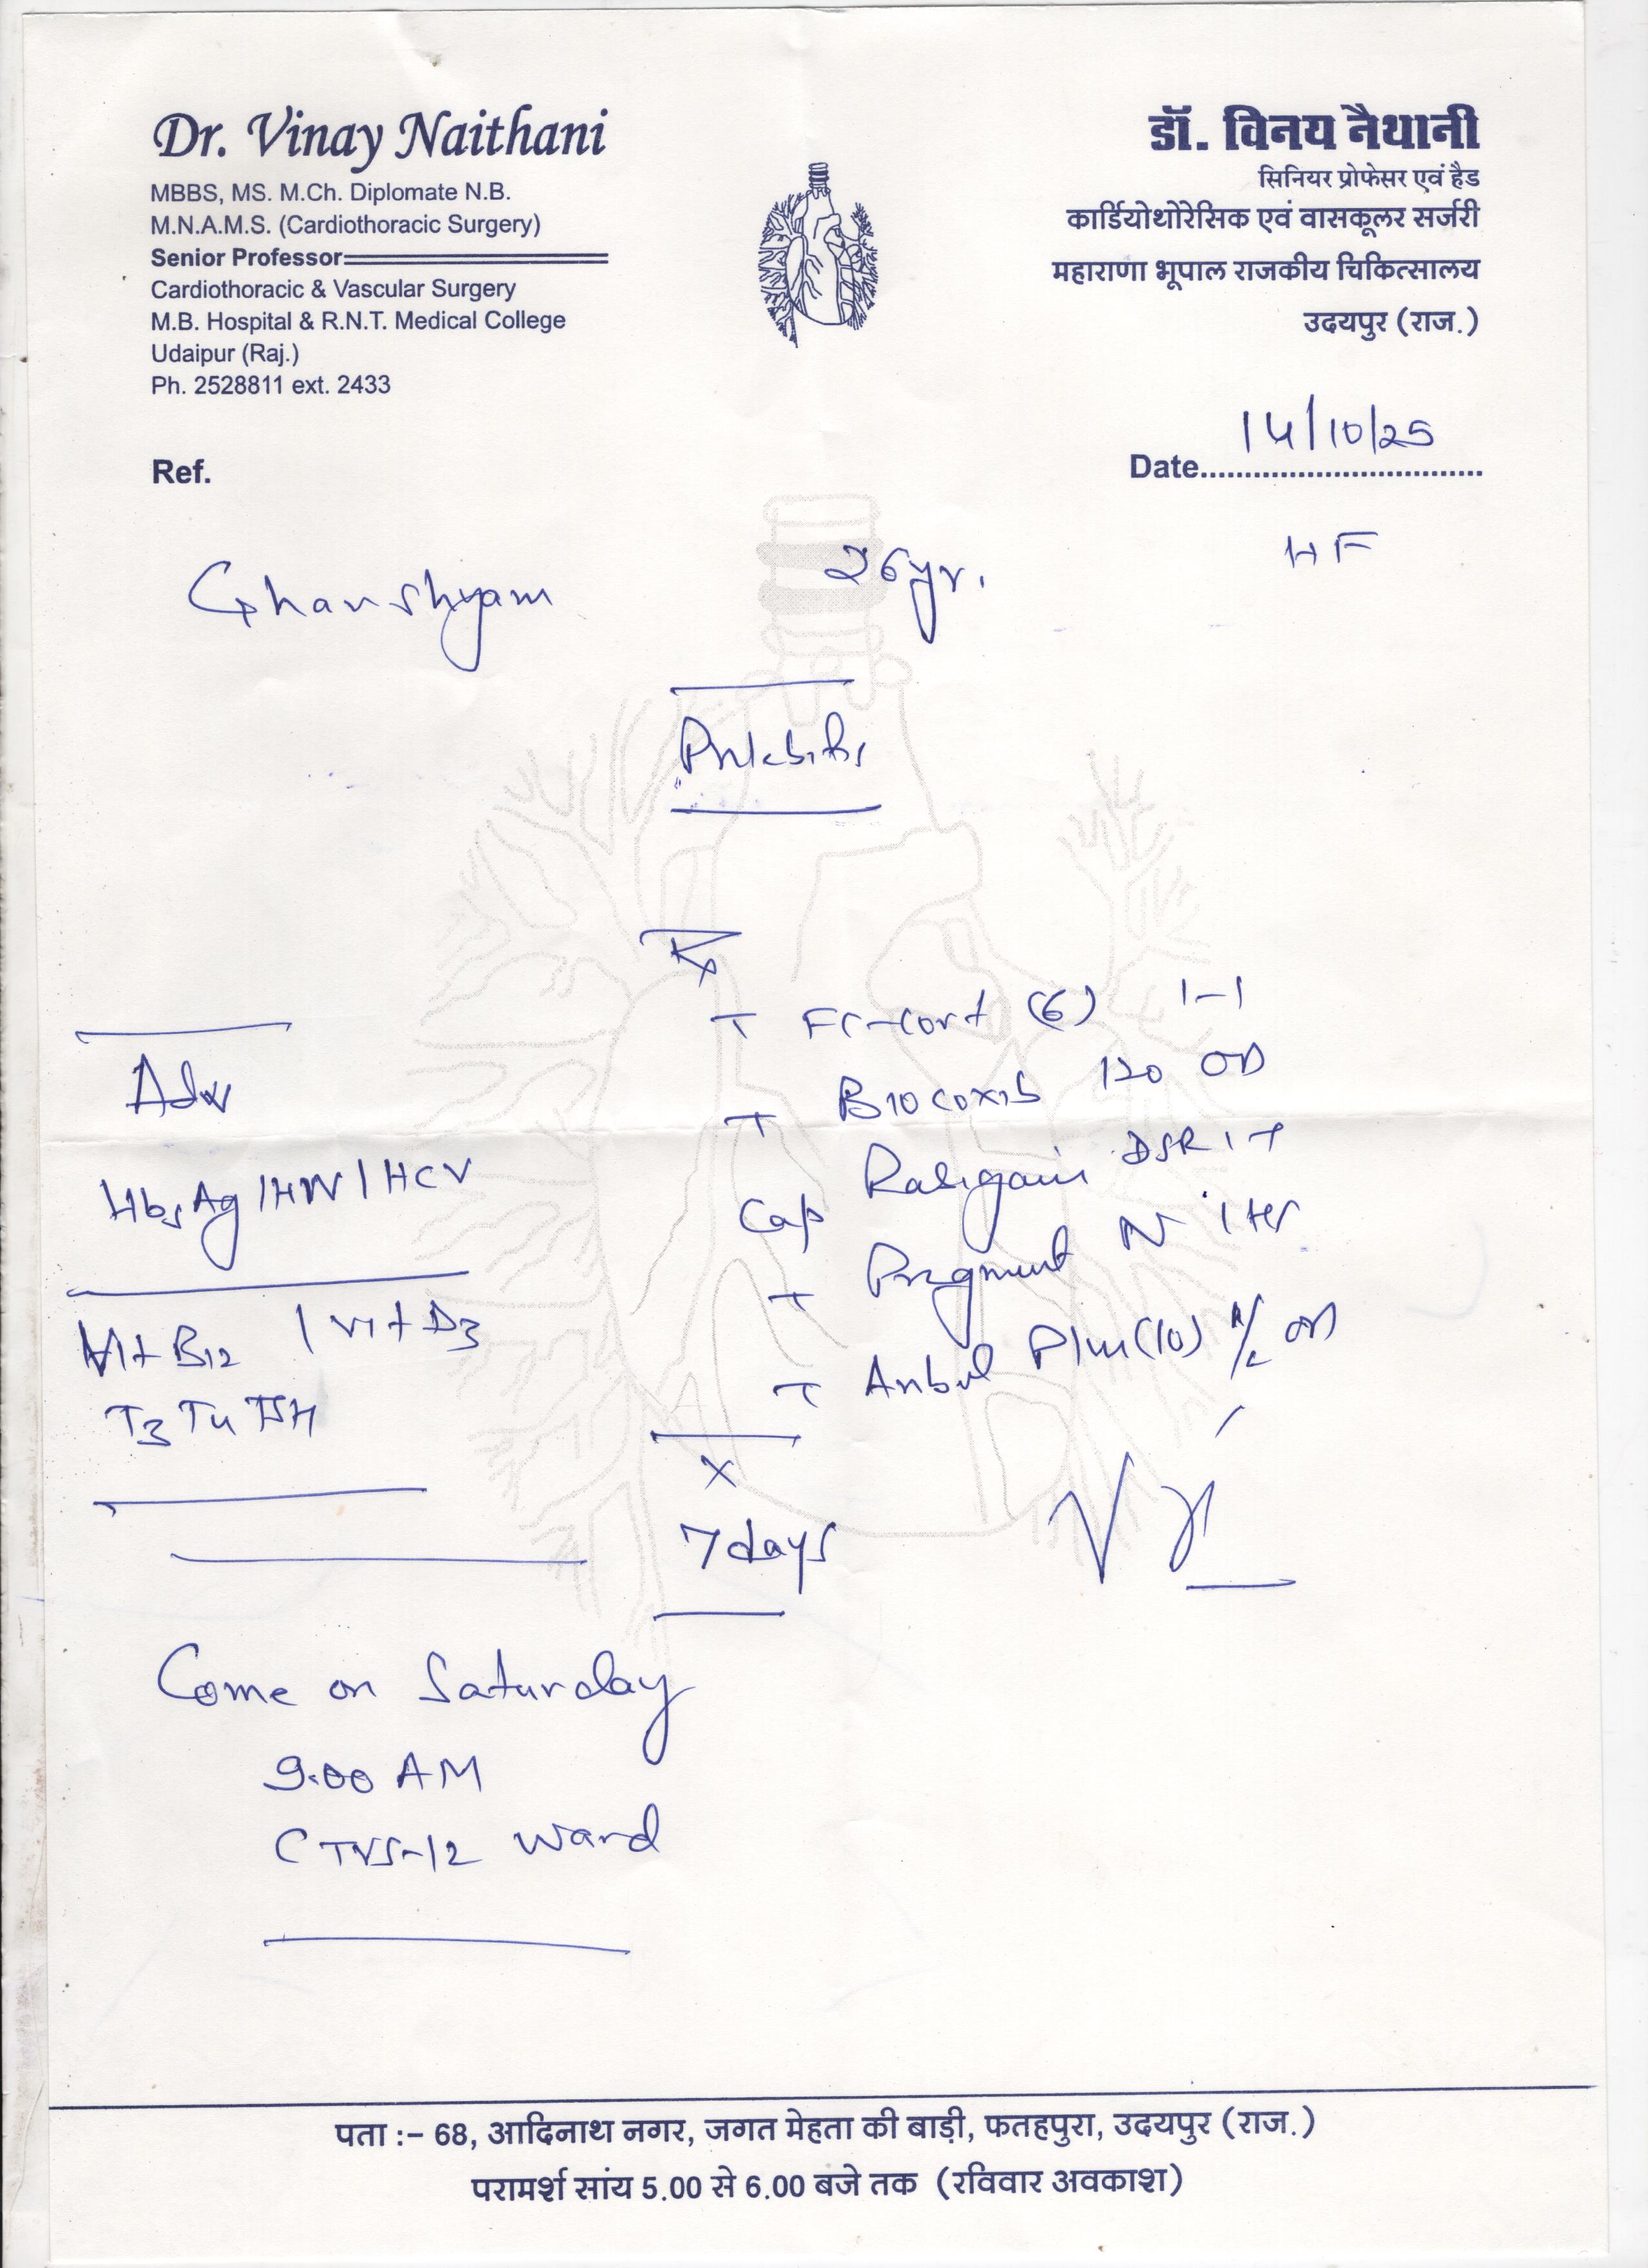 Dr. Vinay Naithani
MBBS, MS. M.Ch. Diplomate N.B.
M.N.A.M.S. (Cardiothoracic Surgery)
Senior Professor
Cardiothoracic & Vascular Surgery
M.B. Hospital & R.N.T. Medical College
Udaipur (Raj.)
Ph. 2528811 ext. 2433
डॉ. विनय नैथानी
सिनियर प्रोफेसर एवं हैड
कार्डियोथोरेसिक एवं वासकूलर सर्जरी
महाराणा भूपाल राजकीय चिकित्सालय
उदयपुर (राज.)
Ref.
Date 14/10/25
HF
Ghanshyam 26yr.
Phlebitis
Rx
T (6) 1-1
T Biocoxib 120 OD
Cap DSR
T N
T Plus (10) OD
x
7 days
Adv
HbsAg / HIV / HCV
Vit B12 / Vit D3
T3 T4 TSH
Come on Saturday
9.00 AM
CTVS-12 Ward
पता :– 68, आदिनाथ नगर, जगत मेहता की बाड़ी, फतहपुरा, उदयपुर (राज.)
परामर्श सांय 5.00 से 6.00 बजे तक (रविवार अवकाश)